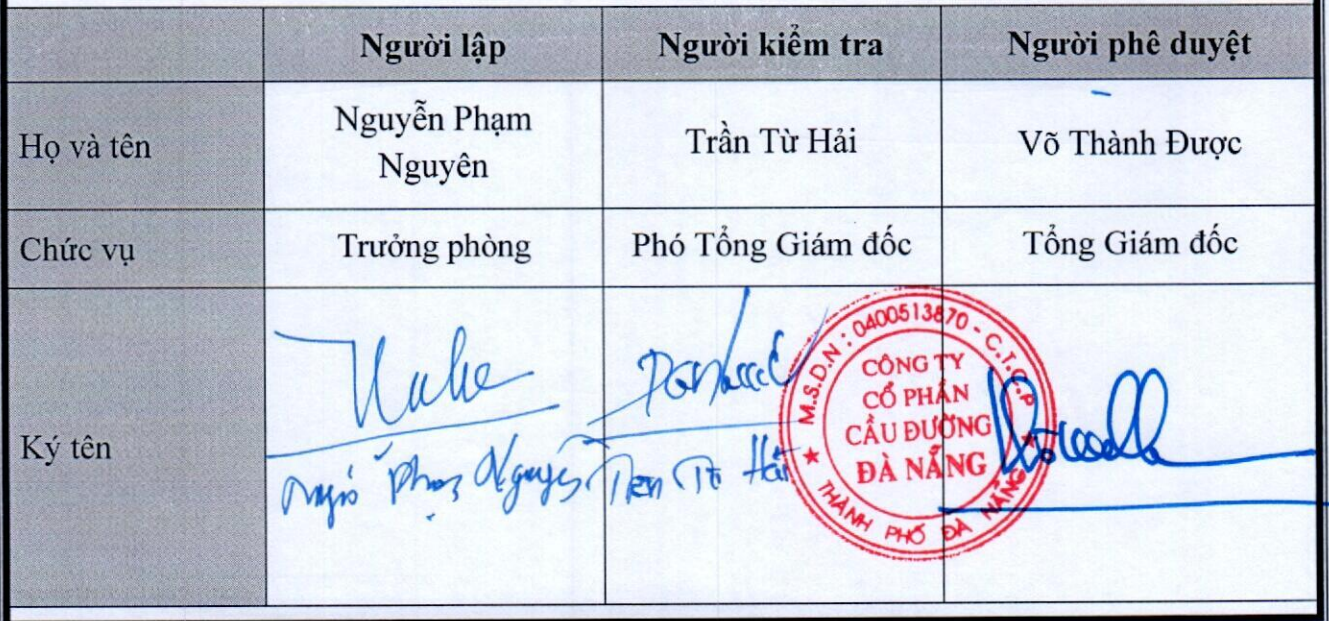 Người lập Người kiểm tra Người phê duyệt
Họ và tên Nguyễn Phạm Nguyên Trần Từ Hải Võ Thành Được
Chức vụ Trưởng phòng Phó Tổng Giám đốc Tổng Giám đốc
Ký tên
M.S.D.N : 0400513870 - C.T.C.P
CÔNG TY
CỔ PHẦN
CẦU ĐƯỜNG
ĐÀ NẴNG
THÀNH PHỐ ĐÀ NẴNG